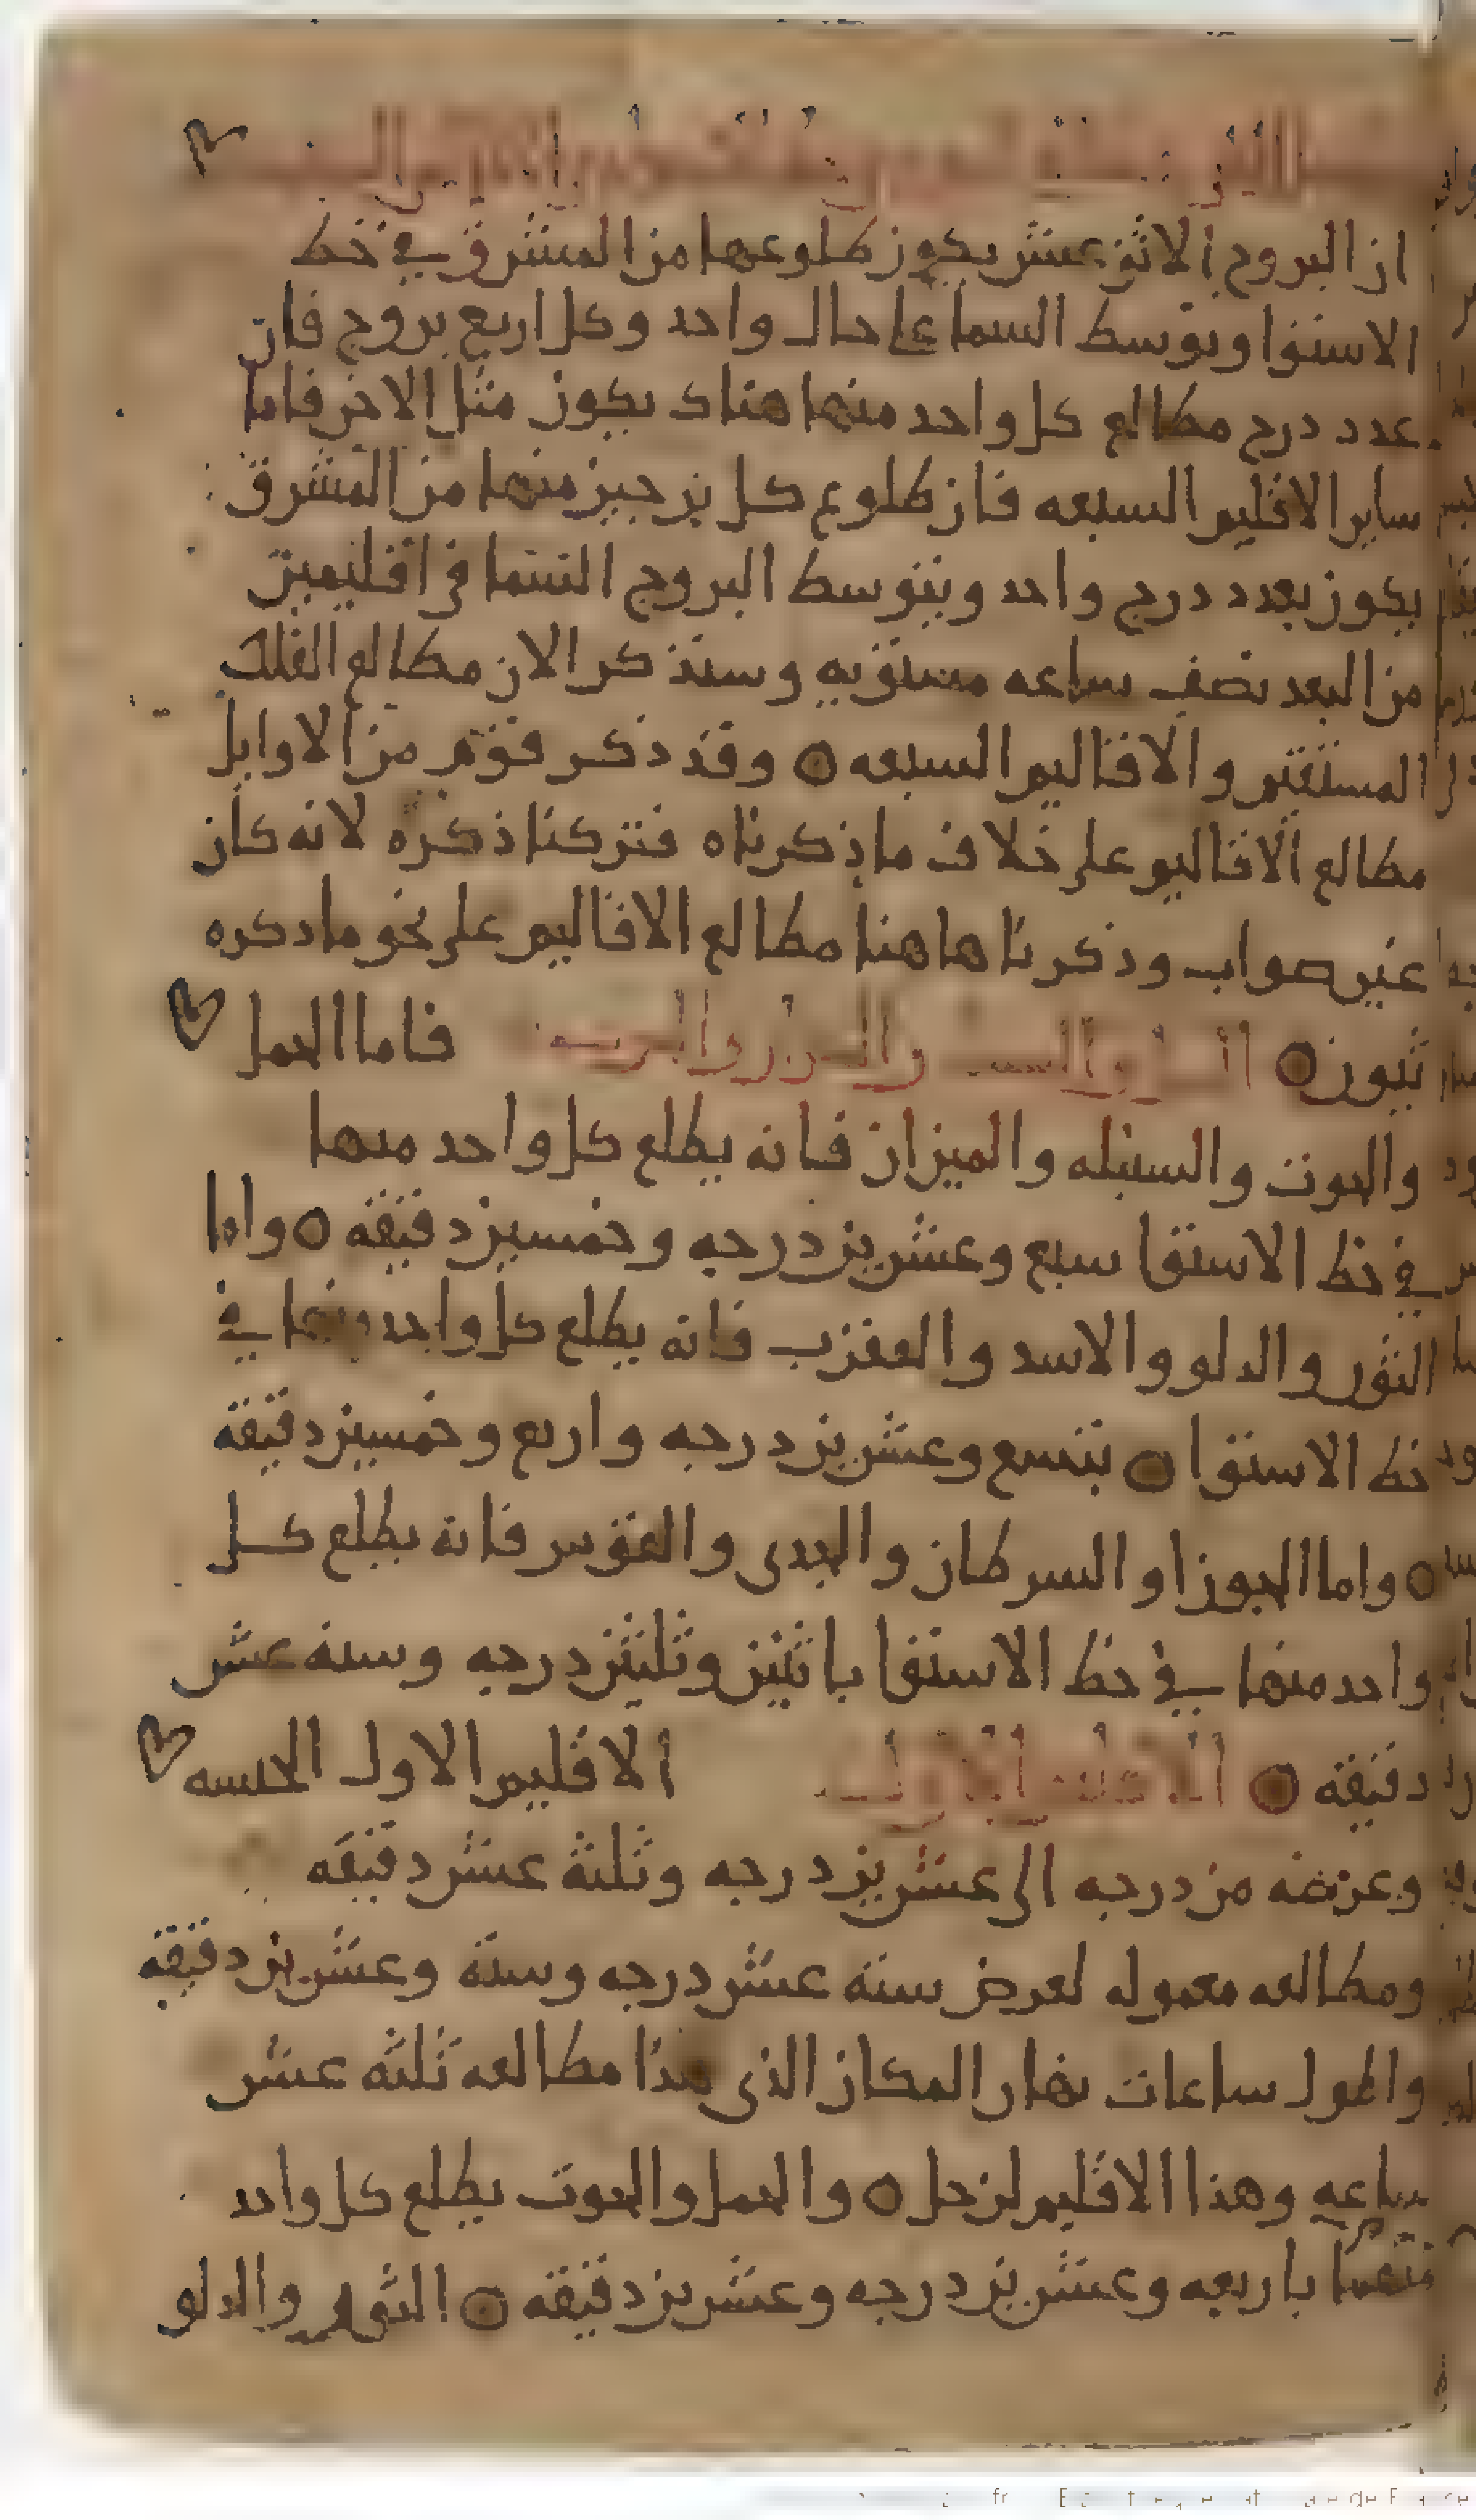 ان البروج الاثنى عشر يكون طلوعها من المشرق في خط
الاستوا وتوسط السما على حال واحد وكل اربع بروج فان
عدد درج مطالع كل واحد منها هناك يكون مثل الاخر فاما
ساير الاقليم السبعه فان طلوع كل برجين منها من المشرق
يكون بعدد درج واحد ويتوسط البروج السما في اقليمين
من البعد نصف ساعه مستويه وسنذكر الان مطالع الفلك
المستقيم والاقاليم السبعه ○ وقد ذكر قوم من الاوايل
مطالع الاقاليم على خلاف ما ذكرناه فتركنا ذكره لانه كان
غير صواب وذكرنا هاهنا مطالع الاقاليم على نحو ما ذكره
ثيون ○ فاما الحمل
والحوت والسنبله والميزان فانه يطلع كل واحد منها
في خط الاستوا سبع وعشرين درجه وخمسين دقيقه ○ واما
الثور والدلو والاسد والعقرب فانه يطلع كل واحد منها في
خط الاستوا ○ بتسع وعشرين درجه واربع وخمسين دقيقه
○ واما الجوزا والسرطان والجدى والقوس فانه يطلع كل
واحد منها في خط الاستوا باثنين وثلثين درجه وسته عشر
دقيقه ○ الاقليم الاول الاقليم الاول الحبشه
وعرضه من درجه الى عشرين درجه وثلثة عشر دقيقه
ومطالعه معموله لعرض سته عشر درجه وستة وعشرين دقيقه
واطول ساعات نهار المكان الذى هذا مطالعه ثلثه عشر
ساعه وهذا الاقليم لزحل ○ والحمل والحوت يطلع كل واحد
منهما باربعه وعشرين درجه وعشرين دقيقه ○ الثور والدلو